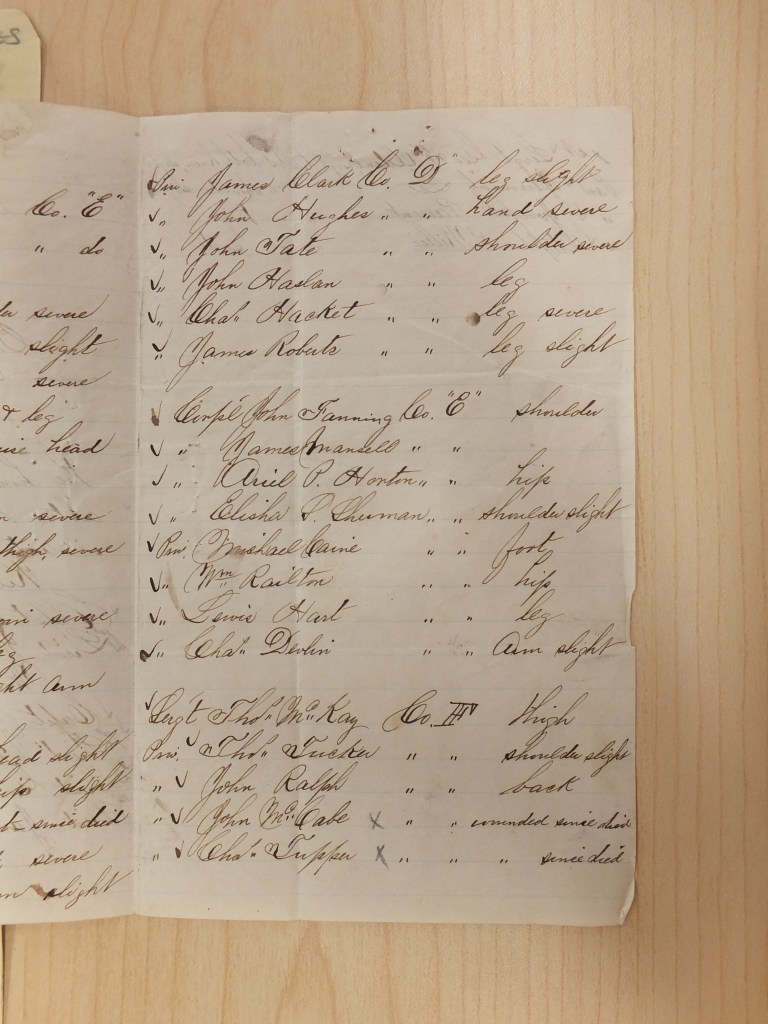 Co. "E"
" do
severe
slight
severe
& leg
head
severe
thigh, severe
severe
arm
head slight
slight
since died
severe
slight
Pri. James Clark Co. D" leg slight
✓ " John Hughes " " hand severe
✓ " John Tate " " shoulder severe
✓ " John Haslan " " leg
✓ " Chas Hacket " " leg severe
✓ " James Roberts " " leg slight
✓ Corpl John Fanning Co. "E" shoulder
✓ " James Mansell " "
✓ " Ariel P. Horton " " hip
✓ " Elisha P. Sherman " " shoulder slight
✓ Pri. Michael Caine " " foot
✓ " Wm Railton " " hip
✓ " Lewis Hart " " leg
✓ " Chas Devlin " " Arm slight
✓ Sergt Thos McKay Co. thigh
Pri. ✓ Thos Tucker " " shoulder slight
" ✓ John Ralph " " back
" ✓ John McCabe x " " wounded since died
" ✓ Chas Tupper x " " " since died